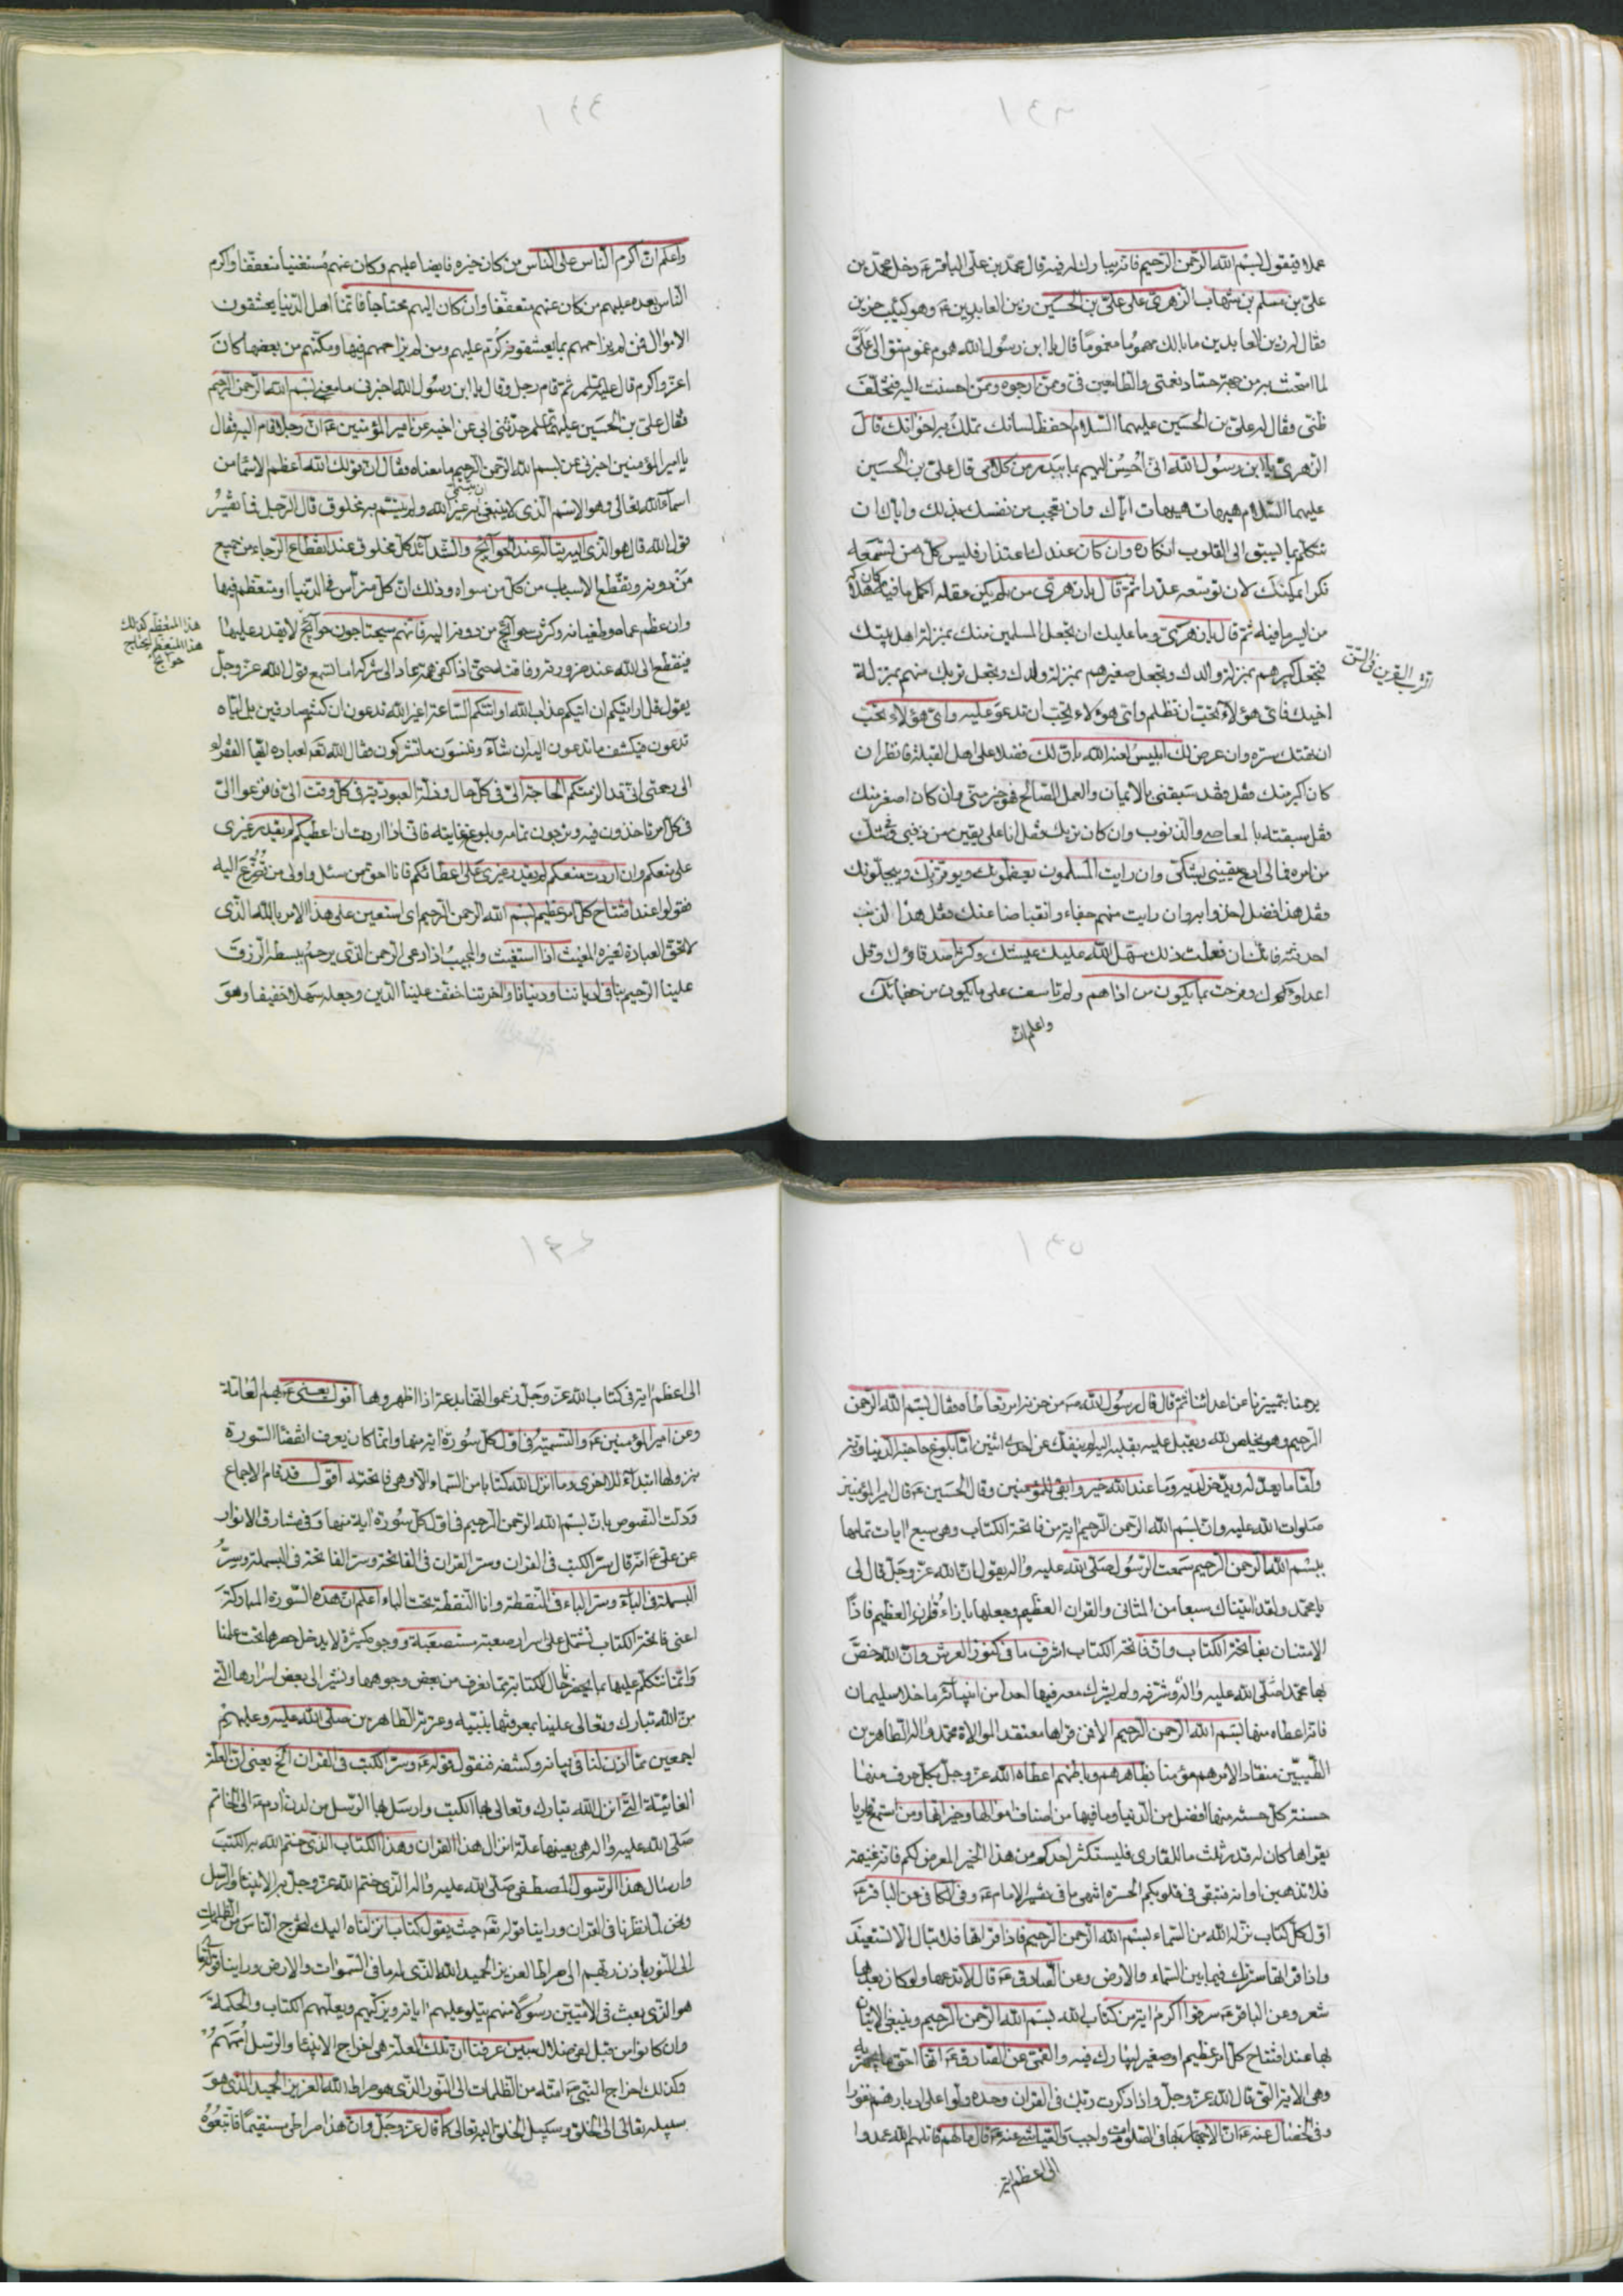 ١٤٣
عمله فيقول بسم الله الرحمن الرحيم فانه يبارك له فيه قال محمد بن على الباقر عَ دخل محمد بن
على بن مسلم بن شهاب الزهرى على على بن الحسين زين العابدين عَ وهو كئيب حزين
فقال له زين العابدين ما بالك مهموما مغموما قال يا ابن رسول الله هموم غموم تتوالى علىّ
لما امتحنت به من جهة حساد نعمتى والطامعين فىّ وممن ارجوه وممن احسنت اليه فتخلّف
ظنى فقال له على بن الحسين عليهما السلام احفظ لسانك تملك به اخوانك قال
الزهرى يا ابن رسول الله انى اُحسِنُ اليهم بما يبدر من كلامى قال على بن الحسين
عليهما السلام هيهات هيهات اياك وان تعجب من نفسك بذلك واياك ان
تتكلم بما يسبق الى القلوب انكاره وان كان عندك اعتذاره فليس كل من تسمعه
نكرا يمكنك لان توسعه عذرا ثم قال يا زهرى من لم يكن عقله اكمل ما فيه كان هلاكه
من ايسر ما فيه ثم قال يا زهرى وما عليك ان تجعل المسلمين منك بمنزلة اهل بيتك
فتجعل كبيرهم بمنزلة والدك وتجعل صغيرهم بمنزلة ولدك وتجعل تربك منهم بمنزلة
الترب القرين فى السن
اخيك فاى هؤلاء تحب ان تظلم واى هؤلاء تحب ان تدعو عليه واى هؤلاء تحب
ان تهتك ستره وان عرض لك ابليس لعنه الله بان لك فضلا على اهل القبلة فانظر ان
كان اكبر منك فقل قد سبقنى بالايمان والعمل الصالح فهو خير منى وان كان اصغر منك
فقل سبقته بالمعاصى والذنوب وان كان تربك فقل انا على يقين من ذنبى وفى شك
من امره فمالى ادع يقينى بشكى وان رايت المسلمون يعظمونك ويوقرونك ويبجلونك
فقل هذا فضل اخذوا به وان رايت منهم جفاء وانقباضا عنك فقل هذا لذنب
احدثته فانك ان فعلت ذلك سهل الله عليك عيشتك وكثر اصدقاؤك وقل
اعداؤك وفرحت بما يكون من اذاهم ولم تاسف على ما يكون من جفائك
واعلم ان
١٤٤
واعلم ان اكرم الناس على الناس من كان خيره فايضا عليهم وكان عنهم مستغنيا متعففا واكرم
الناس بعده عليهم من كان عنهم متعففا وان كان اليهم محتاجا فانما اهل الدنيا يعشقون
الاموال فمن لم يزاحمهم بما يعشقونه كرم عليهم ومن لم يزاحمهم فيها ومكنهم من بعضها كان
اعز واكرم قال ثم قام رجل وقال يا ابن رسول الله اخبرنى ما معنى بسم الله الرحمن الرحيم
فقال على بن الحسين حدثنى ابى عن اخيه عن امير المؤمنين عَ ان رجلا قام اليه فقال
يا امير المؤمنين اخبرنى عن بسم الله الرحمن الرحيم ما معناه فقال ان قولك الله اعظم الاسماء من
اسماء الله تعالى وهو الاسم الذى لا ينبغى ان يتسمى به غير الله ولم يتسم به مخلوق قال الرجل فما تفسير
قول الله قال هو الذى اليه يتاله عند الحوائج والشدائد كل مخلوق عند انقطاع الرجاء من جميع
من دونه وتقطع الاسباب من كل من سواه وذلك ان كل متراس فى الدنيا او متعظم فيها
وان عظم غناه وطغيانه وكثرت حوائج من دونه اليه فانهم سيحتاجون حوائج لا يقدر عليها
هذا المتعظم كذلك
هذا المتعظم يحتاج
حوائج
فينقطع الى الله عند ضرورته وفاقته حتى اذا كفى همه عاد الى شركه اما تسمع قول الله عز وجل
يقول قل ارايتكم ان اتيكم عذاب الله او اتتكم الساعة اغير الله تدعون ان كنتم صادقين بل اياه
تدعون فيكشف ما تدعون اليه ان شاء وتنسون ما تشركون فقال الله تعَ لعباده ايها الفقراء
الى رحمتى انى قد الزمتكم الحاجة الىّ فى كل حال وذلة العبودية فى كل وقت الىّ فافزعوا الىّ
فى كل امر تاخذون فيه وترجون تمامه وبلوغ غايته فانى اذا اردت ان اعطيكم لم يقدر غيرى
على منعكم وان اردت منعكم لم يقدر غيرى على اعطائكم فانا احق من سئل واولى من تُضُرِّعَ اليه
فقولوا عند افتتاح كل امر عظيم بسم الله الرحمن الرحيم اى استعين على هذا الامر بالله الذى
لا تحق العبادة لغيره المغيث اذا استغيث والمجيب اذا دعى الرحمن الذى يرحم ببسط الرزق
علينا الرحيم بنا فى ادياننا ودنيانا واخرتنا خفف علينا الدين وجعله سهلا خفيفا وهو
١٤٥
يرحمنا بتمييزنا عن اعدائنا ثم قال قال رسول الله صَ من حزنه امر تعاطاه فقال بسم الله الرحمن
الرحيم وهو يخلص لله ويقبل عليه بقلبه اليه لم ينفك عن احدى اثنتين اما بلوغ حاجته الدنياويه
واما ما يعد له ويدخر لديه وما عند الله خير وابقى للمؤمنين وقال الحسين عَ قال امير المؤمنين
صلوات الله عليه وان بسم الله الرحمن الرحيم اية من فاتحة الكتاب وهى سبع ايات تمامها
ببسم الله الرحمن الرحيم سمعت الرسول صلى الله عليه واله يقول ان الله عز وجل قال لى
يا محمد ولقد اتيناك سبعا من المثانى والقران العظيم وجعلها بازاء القران العظيم فاذا
الامتنان بفاتحة الكتاب وان فاتحة الكتاب اشرف ما فى كنوز العرش وان الله خصّ
بها محمدا صلى الله عليه واله وشرفه ولم يشرك معه فيها احدا من انبيائه ما خلا سليمان
فانه اعطاه منها بسم الله الرحمن الرحيم الا فمن قراها معتقدا لموالاة محمد واله الطاهرين
الطيبين منقادا لامرهم مؤمنا بظاهرهم وباطنهم اعطاه الله عز وجل بكل حرف منها
حسنة كل حسنة منها افضل من الدنيا وما فيها من اصناف اموالها وخيراتها ومن استمع قاريا
يقراها كان له قدر ثلث ما للقارى فليستكثر احدكم من هذا الخير المعرض لكم فانه غنيمة
فلا تذهبن اوانه فتبقى فى قلوبكم الحسرة انتهى ما فى تفسير الامام عَ وفى الكافى عن الباقر عَ
اول كل كتاب نزله الله من السماء بسم الله الرحمن الرحيم فاذا قراتها فلا تبال الا تستعيذ
واذا قراتها سترتك فيما بين السماء والارض وعن الصادق عَ قال لا تدعها ولو كان بعدها
شعر وعن الباقر عَ سرقوا اكرم اية من كتاب الله بسم الله الرحمن الرحيم وينبغى الاتيان
بها عند افتتاح كل امر عظيم او صغير ليبارك فيه والقمى عن الصادق عَ انها احق ما يجهر به
وهى الاية التى قال الله عز وجل واذا ذكرت ربك فى القران وحده ولوا على ادبارهم نفورا
وفى الخصال عنه عَ ان الاجهار بها فى الصلوة واجب والعياشى عنه عَ قال ما لهم قاتلهم الله عمدوا
الى اعظم اية
١٤٦
الى اعظم اية فى كتاب الله عز وجل زعموا انها بدعة اذا اظهروها اقول يعنى عَ بهم العامة
وعن امير المؤمنين عَ والتسمية فى اول كل سورة اية منها وانما كان يعرف انقضاء السورة
بنزولها ابتداء للاخرى وما انزل الله كتابا من السماء الا وهى فاتحته اقول قد قام الاجماع
ودلت النصوص بان بسم الله الرحمن الرحيم فى اول كل سورة اية منها وفى مشارق الانوار
عن على عَ انه قال سر الكتب فى القران وسر القران فى الفاتحة وسر الفاتحة فى البسملة وسرّ
البسملة فى الباء وسر الباء فى النقطة وانا النقطة تحت الباء اعلم ان هذه السورة المباركة
اعنى فاتحة الكتاب تشتمل على اسرار صعبة مستصعبة ووجوه كثيرة لا يدخل حصرها تحت علمنا
وانما نتكلم عليها بما يحضر بنا حال الكتابة مما نعرف من بعض وجوهها ونشير الى بعض اسرارها التى
منّ الله تبارك وتعالى علينا بمعرفتها بنبيه وعترته الطاهرين صلى الله عليه وعليهم
اجمعين مما اذن لنا فى بيانه وكشفه فنقول قوله عَ وسر الكتب فى القران الخ يعنى ان العلة
الغائية التى انزل الله تبارك وتعالى بها الكتب وارسل بها الرسل من لدن ادم عَ الى الخاتم
صلى الله عليه واله هى بعينها علة انزال هذا القران وهذا الكتاب الذى ختم الله به الكتب
وارسال هذا الرسول المصطفى صلى الله عليه واله الذى ختم الله عز وجل به الانبياء والرسل
ونحن لما نظرنا فى القران وراينا قوله تعَ حيث يقول كتاب انزلناه اليك لتخرج الناس من الظلمات
الى النور باذن ربهم الى صراط العزيز الحميد الله الذى له ما فى السموات والارض وراينا قوله تعالى
هو الذى بعث فى الاميين رسولا منهم يتلو عليهم اياته ويزكيهم ويعلمهم الكتاب والحكمة
وان كانوا من قبل لفى ضلال مبين عرفنا ان تلك العلة هى اخراج الانبياء والرسل اممهم
وكذلك اخراج النبى صَ امته من الظلمات الى النور الذى هو صراط الله العزيز الحميد الذى هو
سبيله تعالى الى الخلق وسبيل الخلق اليه تعالى كما قال عز وجل وان هذا صراطى مستقيما فاتبعوه